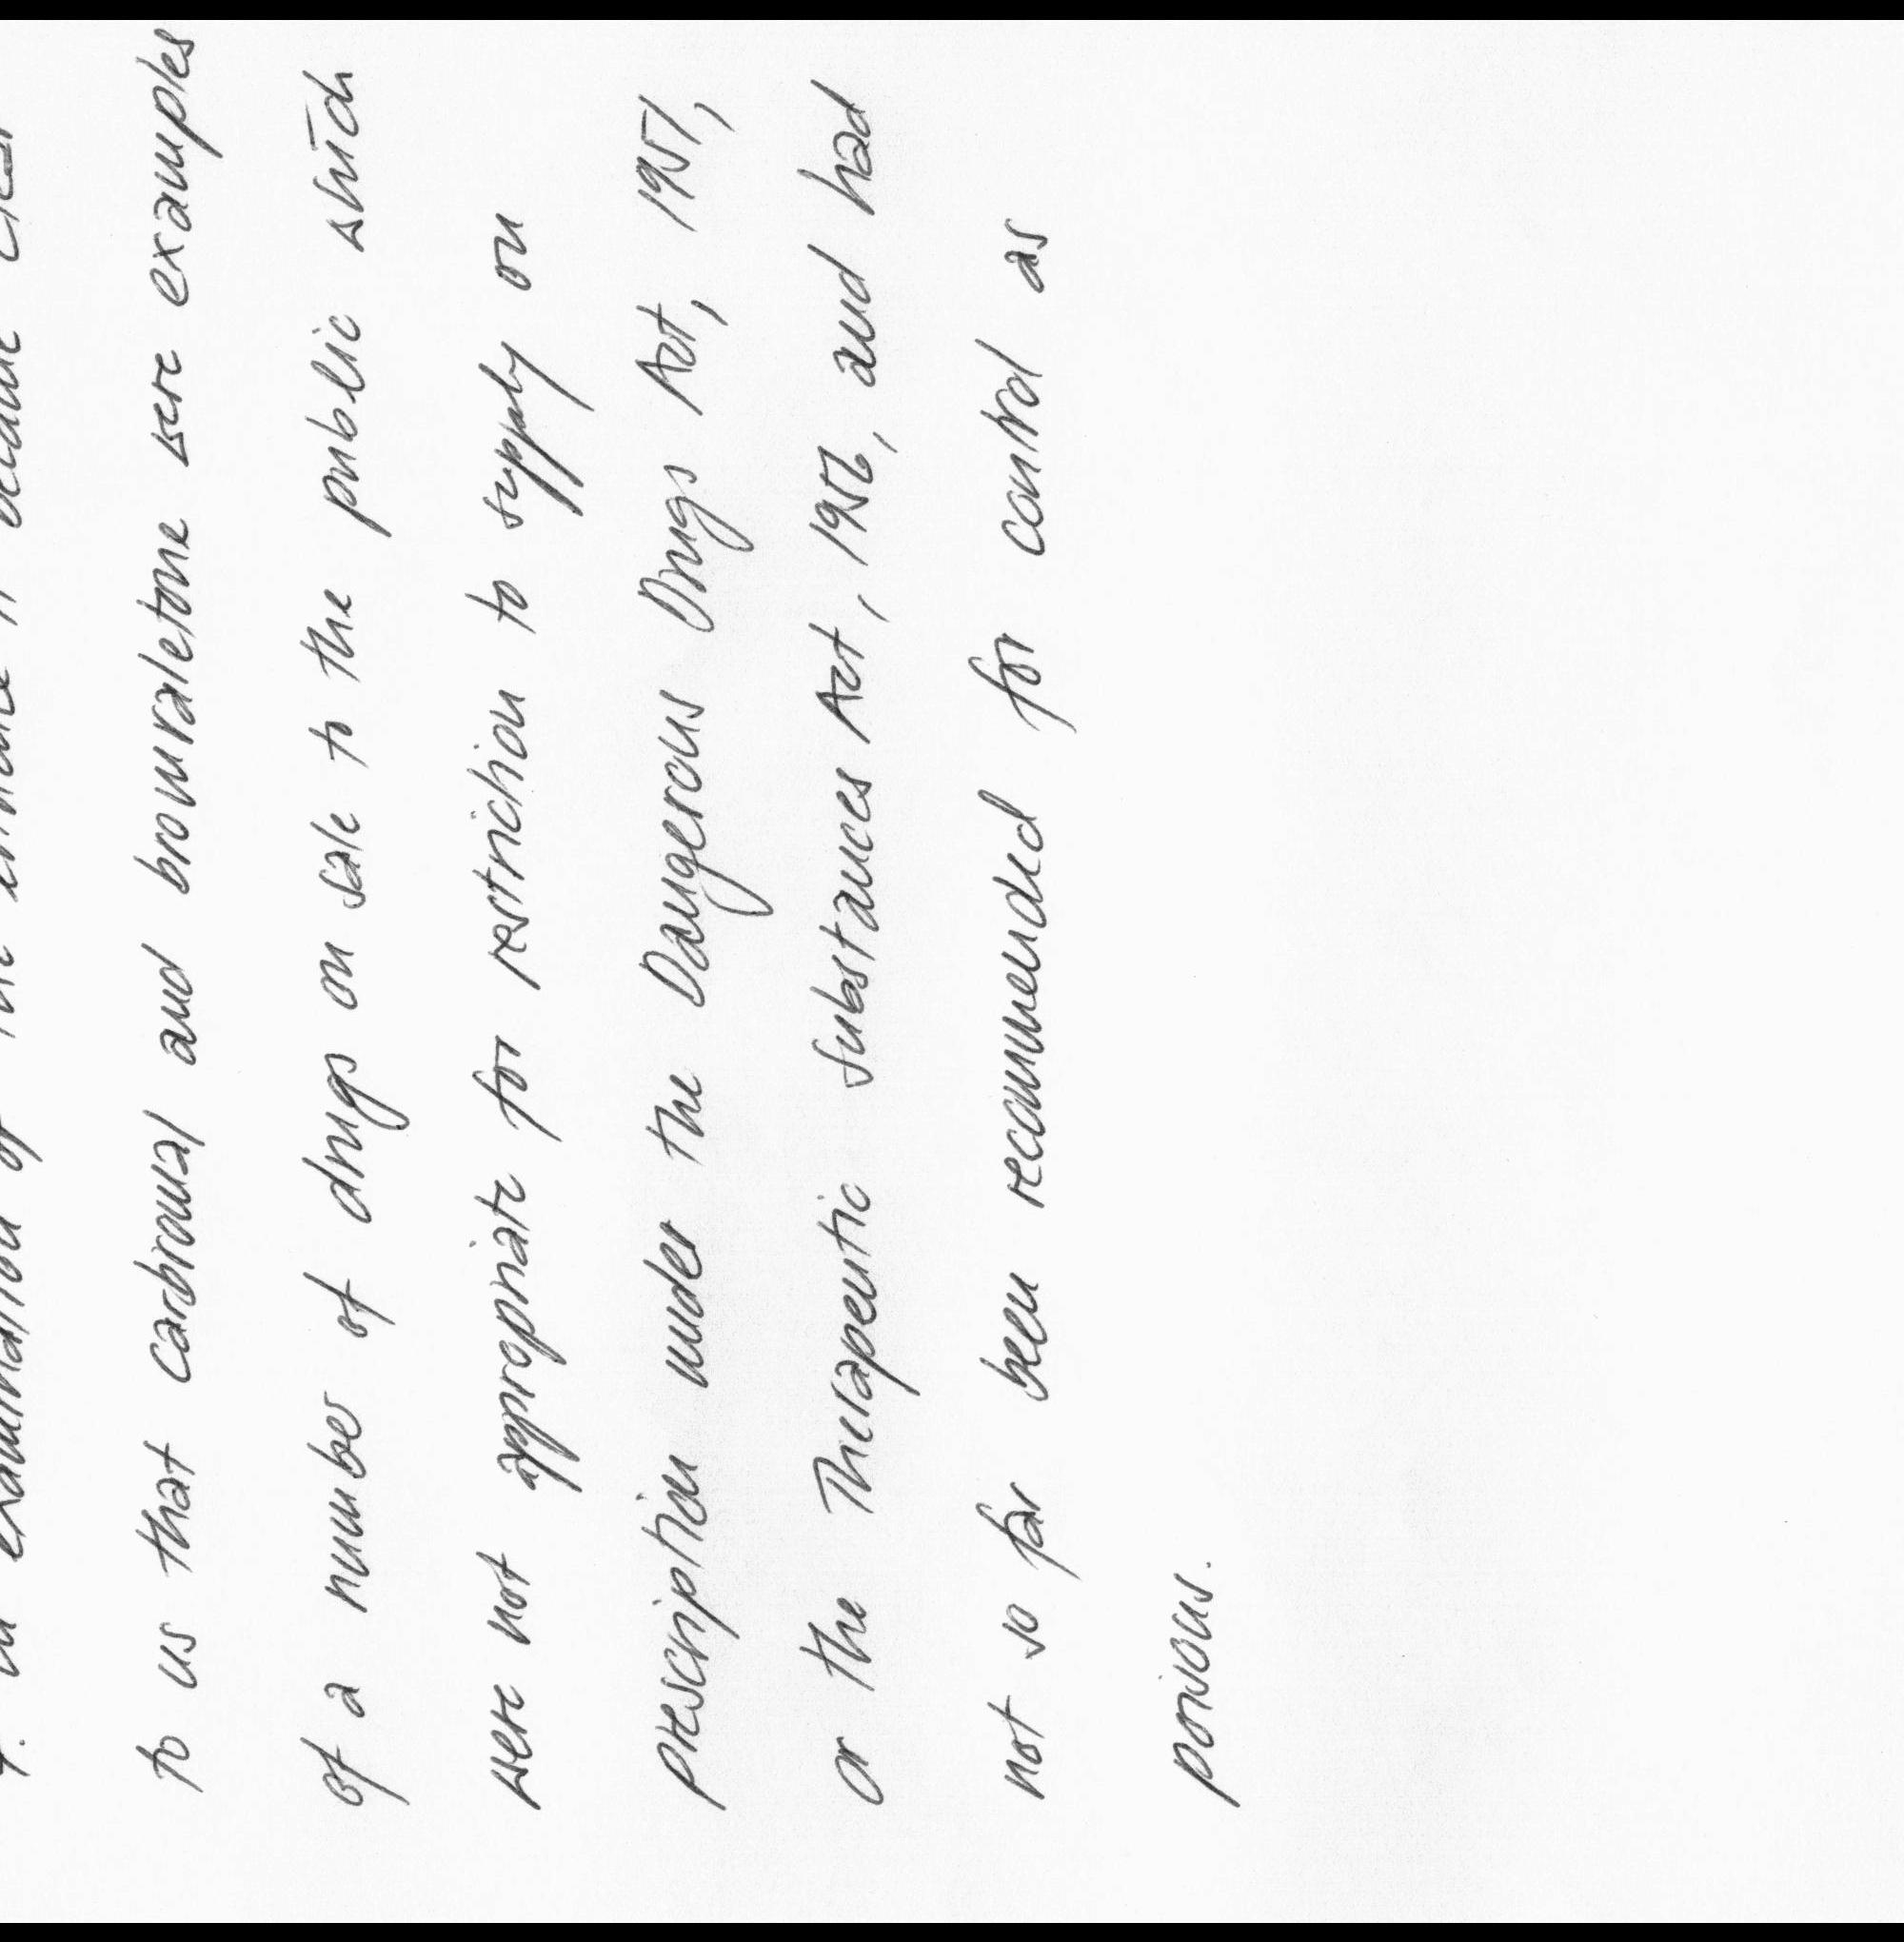 4. In examination of the evidence it became clear
to us that carbromal and bromvaletone were examples
of a number of drugs on sale to the public which
were not appropriate for restriction to supply on
prescription under the Dangerous Drugs Act, 1951,
or the Therapeutic Substances Act, 1956, and had
not so far been recommended for control as
poisons.